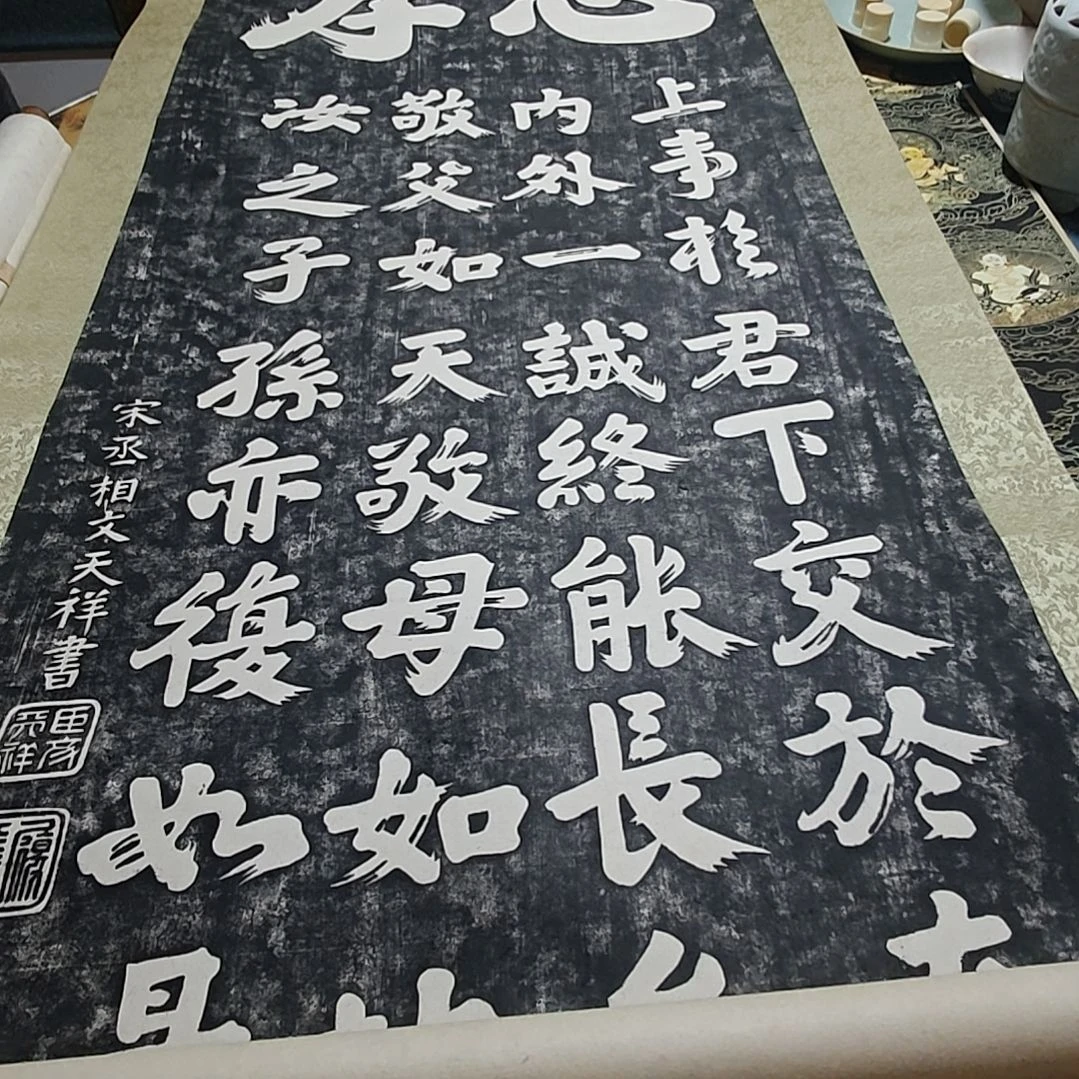 上事於君下交於
内外一誠終能長
敬父如天敬母如
汝之子孫亦復如
宋丞相文天祥書